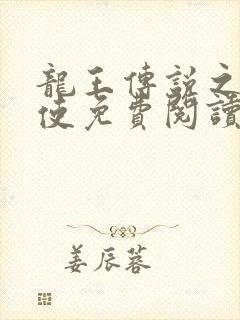 龍王傳説之
使免費閱讀
姜辰蓉